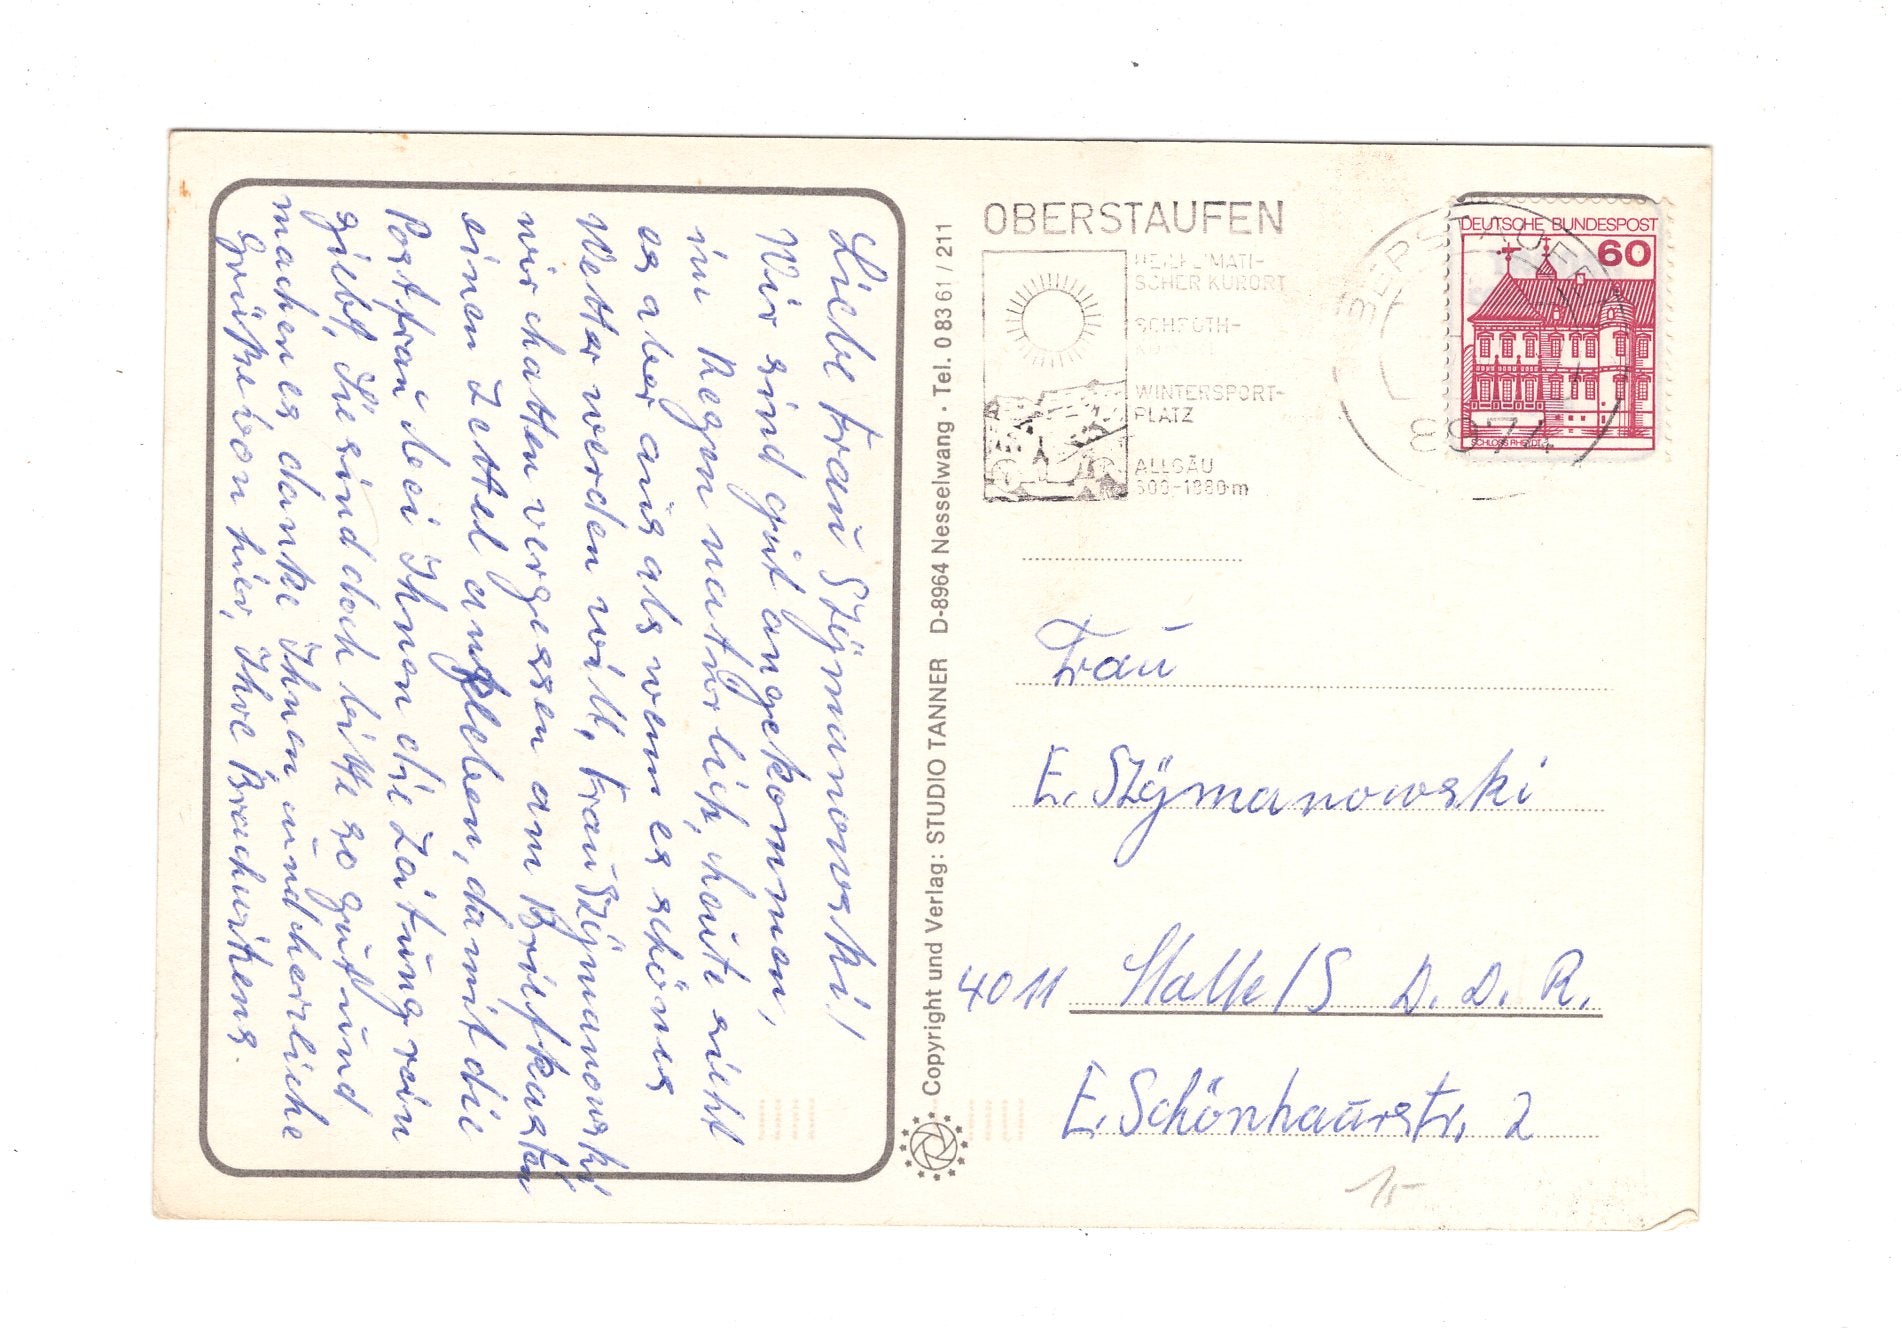 Liebe Frau Szÿmanowski!
Wir sind gut angekommen,
im Regen natürlich, heute sieht
es aber aus als wenn es schönes
Wetter werden will. Frau Szÿmanowski
wir hatten vergessen am Briefkasten
einen Zettel ankleben, damit die
Postfrau bei Ihnen die Zeitung rein
gibt, Sie sind doch bitte so gut und
machen es danke Ihnen und herzliche
Grüße von hier, Ihre
Copyright und Verlag: STUDIO TANNER D-8964 Nesselwang · Tel. 0 83 61 / 211
OBERSTAUFEN
HEILKLIMATI-
SCHER KURORT
SCHROTH-
WINTERSPORT-
PLATZ
ALLGÄU
8974
DEUTSCHE BUNDESPOST
60
SCHLOSS RHEYDT
Frau
E. Szÿmanowski
4011 Halle/S D. D. R.
E. Schönhaarstr. 2